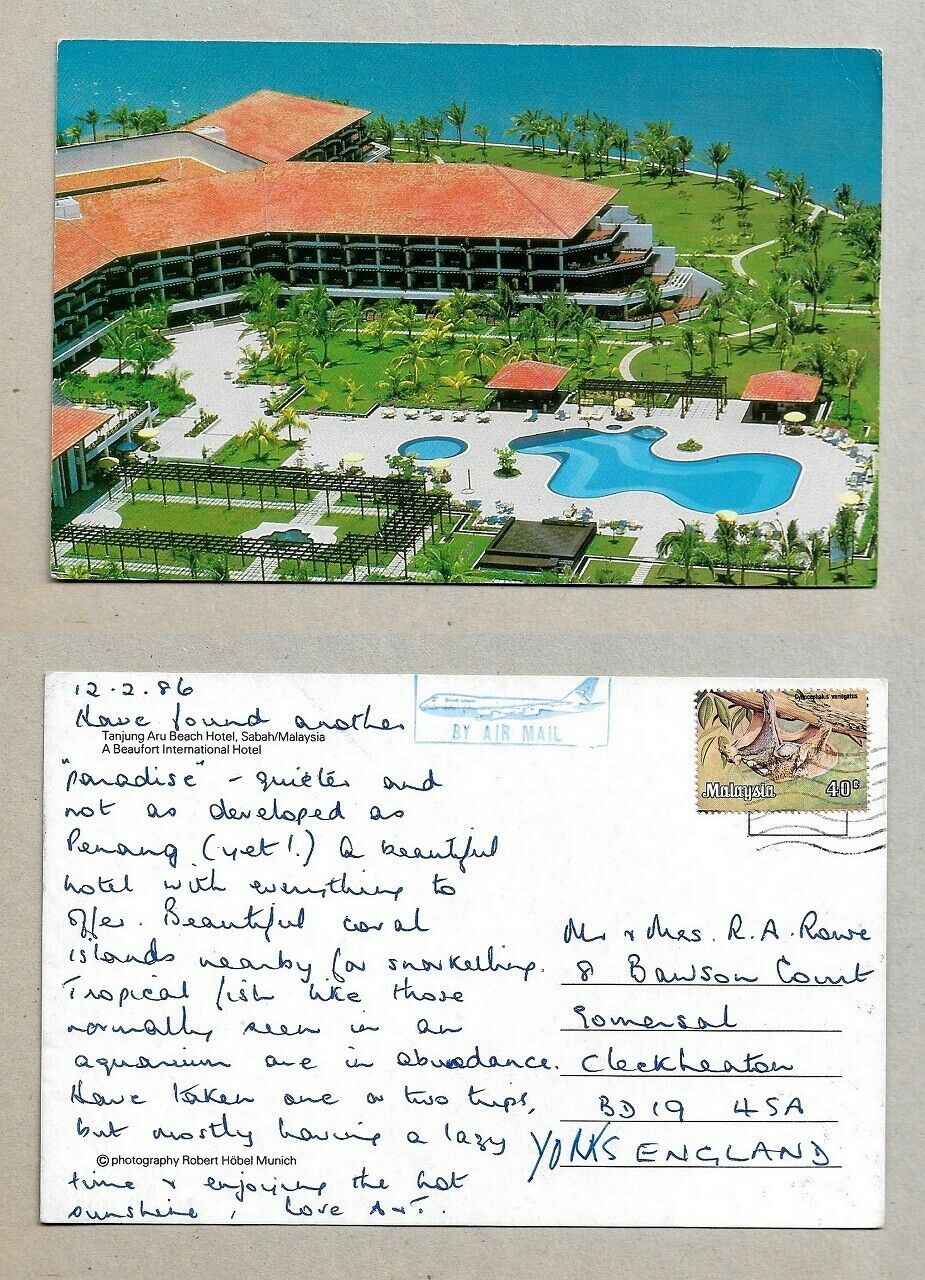 12.2.86
Have found another
Tanjung Aru Beach Hotel, Sabah/Malaysia
A Beaufort International Hotel
"paradise" - quieter and
not as developed as
Penang (yet!.) A beautiful
hotel with everything to
offer. Beautiful coral
islands nearby for snorkelling.
Tropical fish like those
normally seen in an
aquarium are in abundance.
Have taken one or two trips,
but mostly having a lazy
© photography Robert Höbel Munich
time & enjoying the hot
sunshine, Love A & T.
BY AIR MAIL
Cynocephalus variegatus
Malaysia 40c
Mr & Mrs. R. A. Rowe
8 Bawson Court
Gomersal
Cleckheaton
BD19 4SA
YORKS ENGLAND